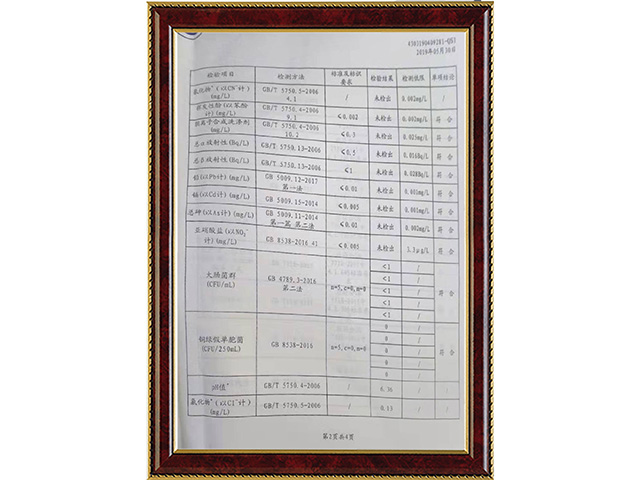 2019年05月30日
检验项目 检测方法 标准及标识要求 检验结果 检测低限 单项结论
氰化物*(以CN⁻计)(mg/L) GB/T 5750.5-2006 4.1 / 未检出 0.002mg/L /
挥发性酚(以苯酚计)(mg/L) GB/T 5750.4-2006 9.1 ≤0.002 未检出 0.002mg/L 符合
阴离子合成洗涤剂(mg/L) GB/T 5750.4-2006 10.2 ≤0.3 未检出 0.025mg/L 符合
总α放射性(Bq/L) GB/T 5750.13-2006 ≤0.5 未检出 0.016Bq/L 符合
总β放射性(Bq/L) GB/T 5750.13-2006 ≤1 未检出 0.028Bq/L 符合
铅(以Pb计)(mg/L) GB 5009.12-2017 第一法 ≤0.01 未检出 0.001mg/L 符合
镉(以Cd计)(mg/L) GB 5009.15-2014 ≤0.005 未检出 0.001mg/L 符合
总砷(以As计)(mg/L) GB 5009.11-2014 第一篇 第二法 ≤0.01 未检出 0.002mg/L 符合
亚硝酸盐(以NO₂⁻计)(mg/L) GB 8538-2016 41 ≤0.005 未检出 3.3μg/L 符合
大肠菌群(CFU/mL) GB 4789.3-2016 第二法 n=5,c=0,m=0 符合
<1 /
<1 /
<1 /
<1 /
<1 /
铜绿假单胞菌(CFU/250mL) GB 8538-2016 n=5,c=0,m=0 符合
0 /
0 /
0 /
0 /
0 /
pH值* GB/T 5750.4-2006 / 6.36 / /
氯化物*(以Cl⁻计)(mg/L) GB/T 5750.5-2006 / 0.13 / /
第2页共4页